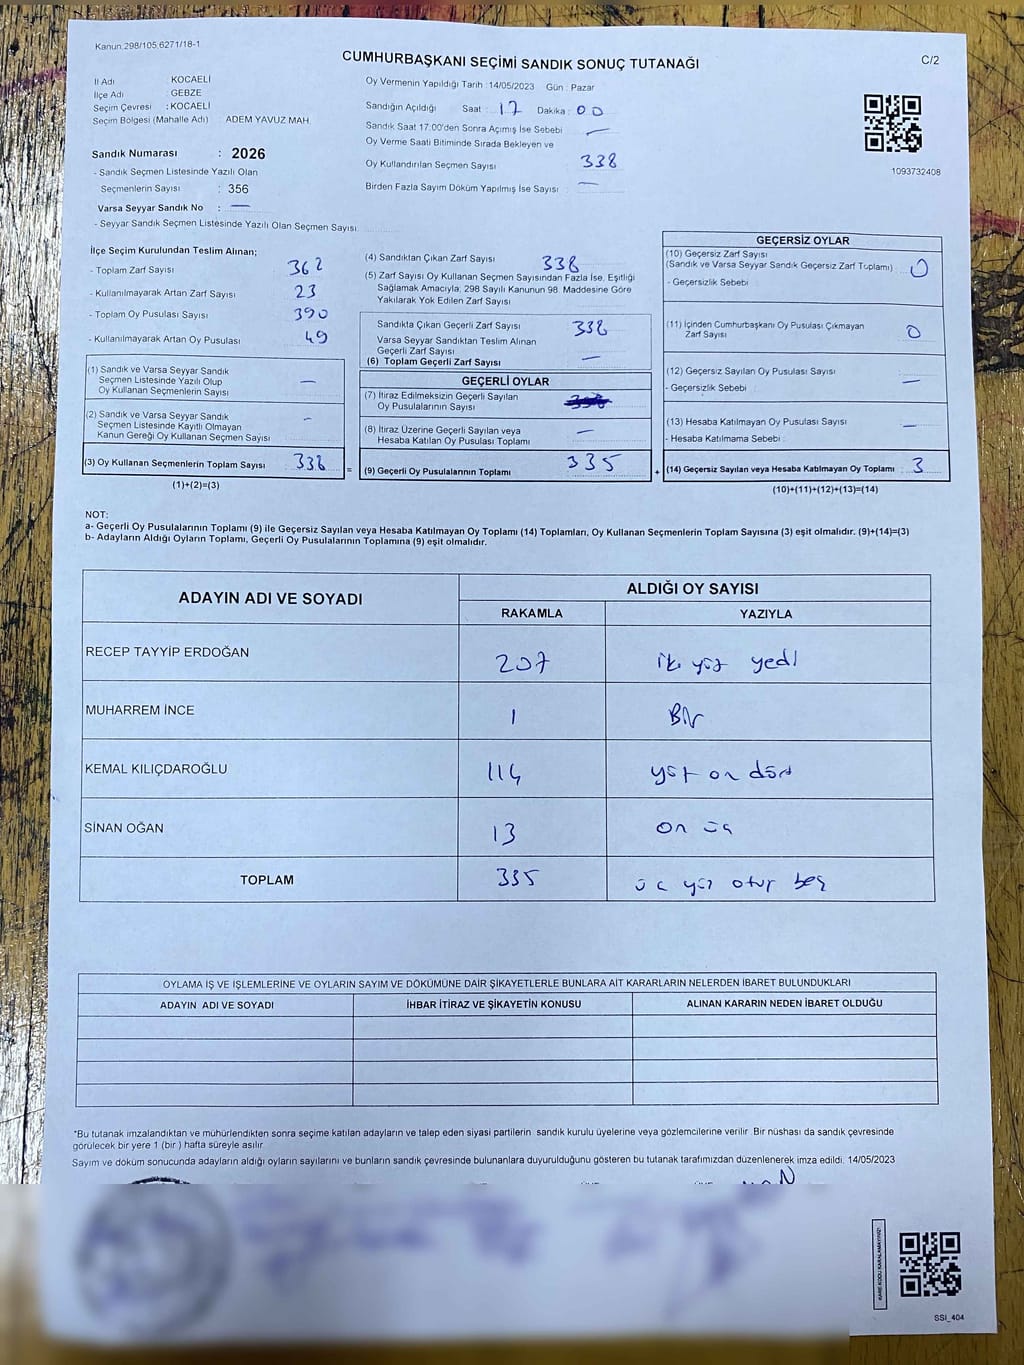 Kanun.298/105,6271/18-1
CUMHURBAŞKANI SEÇİMİ SANDIK SONUÇ TUTANAĞI
C/2
İl Adı KOCAELİ
İlçe Adı GEBZE
Seçim Çevresi : KOCAELİ
Seçim Bölgesi (Mahalle Adı) ADEM YAVUZ MAH.
Sandık Numarası : 2026
- Sandık Seçmen Listesinde Yazılı Olan
Seçmenlerin Sayısı : 356
Varsa Seyyar Sandık No : —
- Seyyar Sandık Seçmen Listesinde Yazılı Olan Seçmen Sayısı
Oy Vermenin Yapıldığı Tarih : 14/05/2023 Gün : Pazar
Sandığın Açıldığı Saat : 17 Dakika : 00
Sandık Saat 17:00'den Sonra Açımış İse Sebebi —
Oy Verme Saati Bitiminde Sırada Bekleyen ve
Oy Kullandırılan Seçmen Sayısı 338
Birden Fazla Sayım Döküm Yapılmış İse Sayısı : —
1093732408
İlçe Seçim Kurulundan Teslim Alınan;
- Toplam Zarf Sayısı 362
- Kullanılmayarak Artan Zarf Sayısı 23
- Toplam Oy Pusulası Sayısı 390
- Kullanılmayarak Artan Oy Pusulası 49
(1) Sandık ve Varsa Seyyar Sandık
Seçmen Listesinde Yazılı Olup
Oy Kullanan Seçmenlerin Sayısı —
(2) Sandık ve Varsa Seyyar Sandık
Seçmen Listesinde Kayıtlı Olmayan
Kanun Gereği Oy Kullanan Seçmen Sayısı -
(3) Oy Kullanan Seçmenlerin Toplam Sayısı 338 =
(1)+(2)=(3)
(4) Sandıktan Çıkan Zarf Sayısı 338
(5) Zarf Sayısı Oy Kullanan Seçmen Sayısından Fazla İse, Eşitliği
Sağlamak Amacıyla, 298 Sayılı Kanunun 98. Maddesine Göre
Yakılarak Yok Edilen Zarf Sayısı
Sandıkta Çıkan Geçerli Zarf Sayısı 338
Varsa Seyyar Sandıktan Teslim Alınan
Geçerli Zarf Sayısı —
(6) Toplam Geçerli Zarf Sayısı
GEÇERLİ OYLAR
(7) İtiraz Edilmeksizin Geçerli Sayılan
Oy Pusulalarının Sayısı
(8) İtiraz Üzerine Geçerli Sayılan veya
Hesaba Katılan Oy Pusulası Toplamı —
(9) Geçerli Oy Pusulalarının Toplamı 335 +
GEÇERSİZ OYLAR
(10) Geçersiz Zarf Sayısı
(Sandık ve Varsa Seyyar Sandık Geçersiz Zarf Toplamı) 0
- Geçersizlik Sebebi :
(11) İçinden Cumhurbaşkanı Oy Pusulası Çıkmayan
Zarf Sayısı 0
(12) Geçersiz Sayılan Oy Pusulası Sayısı
- Geçersizlik Sebebi : —
(13) Hesaba Katılmayan Oy Pusulası Sayısı —
- Hesaba Katılmama Sebebi :
(14) Geçersiz Sayılan veya Hesaba Katılmayan Oy Toplamı 3
(10)+(11)+(12)+(13)=(14)
NOT:
a- Geçerli Oy Pusulalarının Toplamı (9) ile Geçersiz Sayılan veya Hesaba Katılmayan Oy Toplamı (14) Toplamları, Oy Kullanan Seçmenlerin Toplam Sayısına (3) eşit olmalıdır. (9)+(14)=(3)
b- Adayların Aldığı Oyların Toplamı, Geçerli Oy Pusulalarının Toplamına (9) eşit olmalıdır.
ADAYIN ADI VE SOYADI ALDIĞI OY SAYISI
RAKAMLA YAZIYLA
RECEP TAYYİP ERDOĞAN 207 iki yüz yedi
MUHARREM İNCE 1 Bir
KEMAL KILIÇDAROĞLU 114 yüz on dört
SİNAN OĞAN 13 on üç
TOPLAM 335 üç yüz otuz beş
OYLAMA İŞ VE İŞLEMLERİNE VE OYLARIN SAYIM VE DÖKÜMÜNE DAİR ŞİKAYETLERLE BUNLARA AİT KARARLARIN NELERDEN İBARET BULUNDUKLARI
ADAYIN ADI VE SOYADI İHBAR İTİRAZ VE ŞİKAYETİN KONUSU ALINAN KARARIN NEDEN İBARET OLDUĞU
*Bu tutanak imzalandıktan ve mühürlendikten sonra seçime katılan adayların ve talep eden siyasi partilerin sandık kurulu üyelerine veya gözlemcilerine verilir. Bir nüshası da sandık çevresinde
görülecek bir yere 1 (bir) hafta süreyle asılır.
Sayım ve döküm sonucunda adayların aldığı oyların sayılarını ve bunların sandık çevresinde bulunanlara duyurulduğunu gösteren bu tutanak tarafımızdan düzenlenerek imza edildi. 14/05/2023
KARE KODU KARALAMAYINIZ!
SSI_404